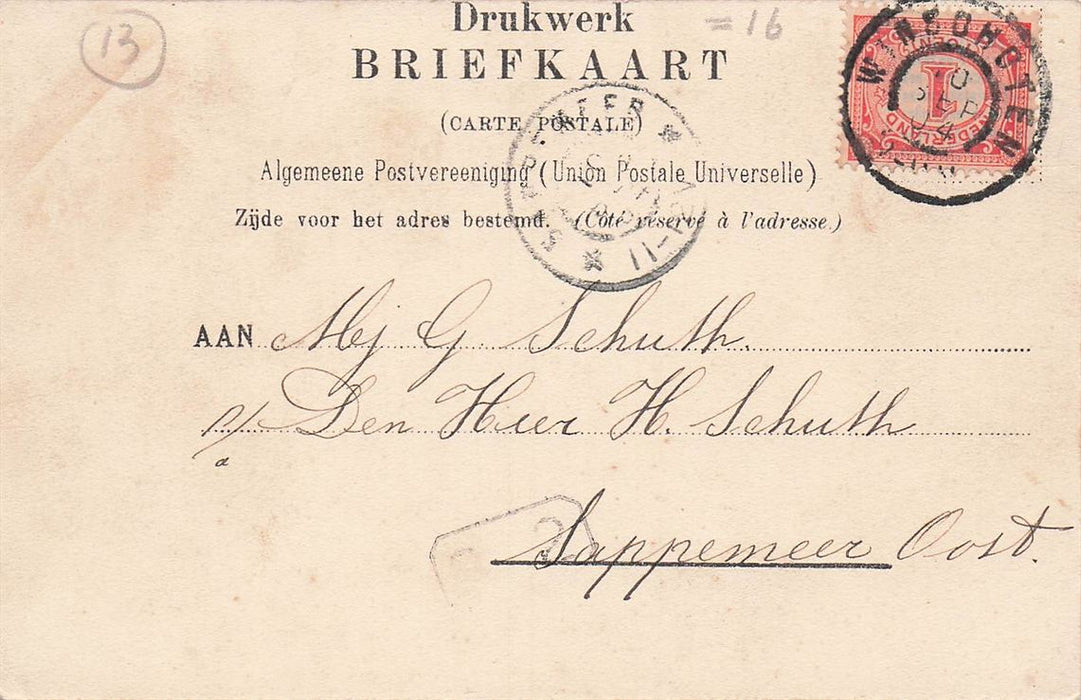 13
Drukwerk
= 16
BRIEFKAART
(CARTE POSTALE)
Algemeene Postvereeniging (Union Postale Universelle)
Zijde voor het adres bestemd. (Côté réservé à l'adresse.)
WINSCHOTEN
SEP
04
NEDERLAND
1
SAPPEMEER
AAN Mej G. Schuth.
p/a Den Heer H. Schuth
Sappemeer Oost.